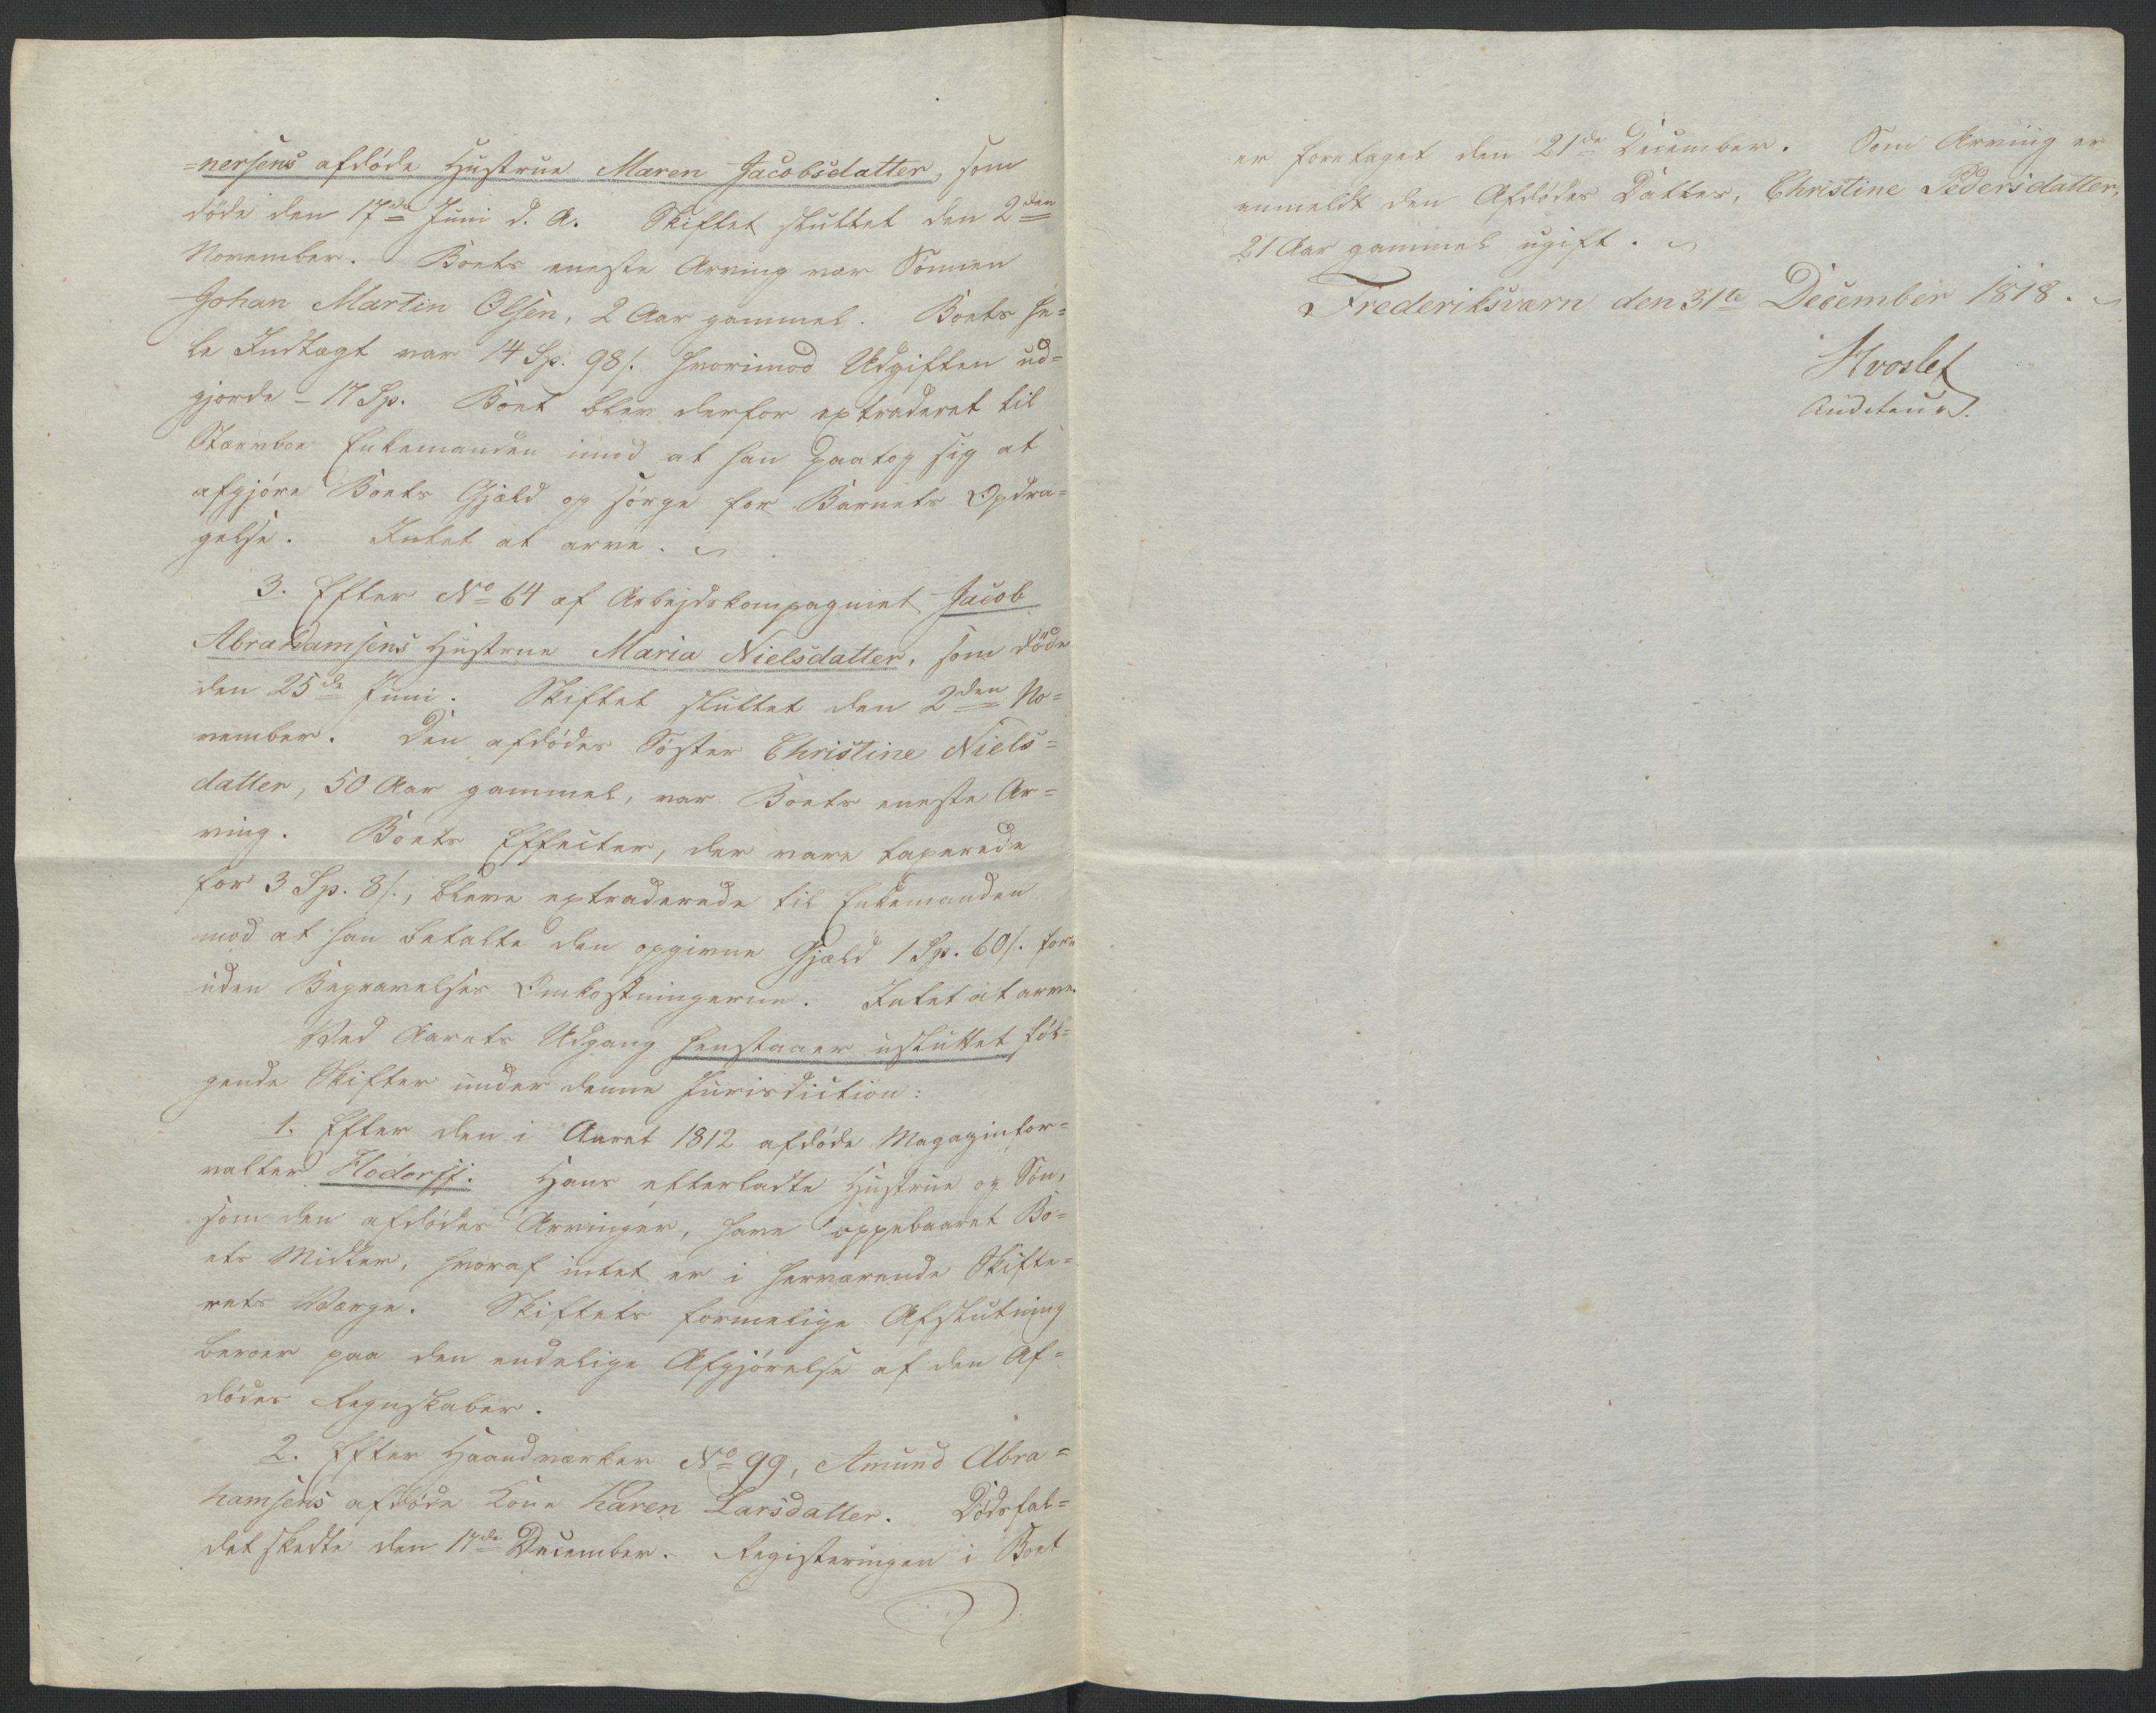 =nersens afdöde Hustrue Maren Jacobsdatter, som
döde den 17de Juni d. A. Skiftet sluttet den 2den
November. Boets eneste Arving var Sönnen
Johan Martin Olsen, 2 Aar gammel. Boets he=
le Indtægt var 14 Sp. 98 s. hvorimod Udgiften ud=
gjorde - 17 Sp. Boet blev derfor extraderet til
Enkemanden imod at han paatog sig at
afgjöre Boets Gjæld og sörge for Barnets Opdra=
gelse. Intet at arve.
3. Efter No 64 af Arbejdskompagniet Jacob
Abrahamsens Hustrue Maria Nielsdatter, som döde
den 25de Juni. Skiftet sluttet den 2den No=
vember. Den afdödes Söster Christine Niels=
datter, 50 Aar gammel, var Boets eneste Ar=
ving. Boets Effecter, der vare taxerede
for 3 Sp. 8 s., bleve extraderede til Enkemanden
mod at han betalte den opgivne Gjæld 1 Sp. 60 s. for
uden Begravelses Omkostningerne. Intet at arve.
Ved Aarets Udgang henstaaer usluttet föl=
gende Skifter under denne Jurisdiction:
1. Efter den i Aaret 1812 afdöde Magazinfor=
valter Flodorff. Hans efterladte Hustrue og Sön,
som den afdödes Arvinger, have oppebaaret Bo=
ets Midler, hvoraf intet er i herværende Skifte=
rets Værge. Skiftets formelige Afslutning
beroer paa den endelige Afgjörelse af den Af=
dödes Regnskaber.
2. Efter Haandværker No 99, Amund Abra=
hamsens afdöde Kone Karen Larsdatter. Dödsfal=
det skedte den 17de December. Registeringen i Boet
er foretaget den 21de December. Som Arving er
anmeldt den Afdödes Datter, Christine Pedersdatter,
21 Aar gammel ugift.
Frederiksværn den 31te December 1818.
Hvoslef
Auditeur.